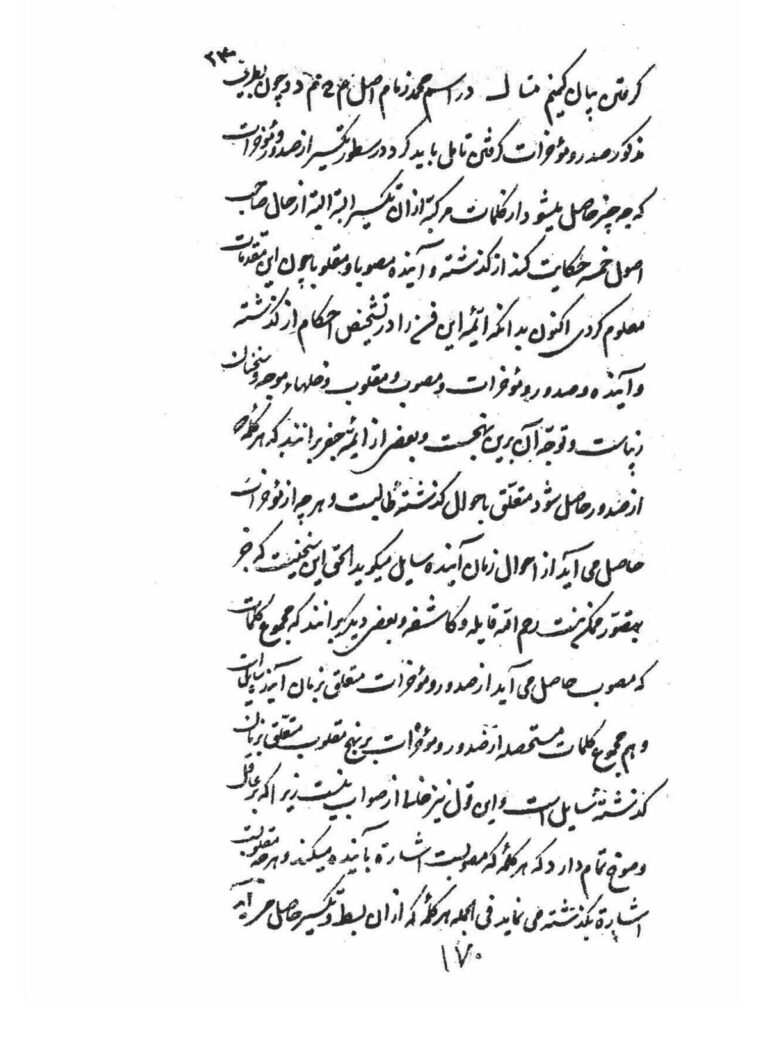 ۲۳
گرفتن بیان کنیم مثال در اسم محمد زمام اصل م ح م د و چون بطریق
مذکور صدر و مؤخرات گرفتن تاملی باید کرد در سطور تکسیر از صدور و مؤخرات
که چه چیز حاصل میشود از کلمات مرکبه از ان تکسیر البته البته از حال صاحب
اصول خمسه حکایت کند از گذشته و آینده مصوبا و مقلوبا چون این مقدمات
معلوم کردی اکنون بدانکه ائمه این فن را در تشخیص احکام از گذشته
و آینده و صدور و مؤخرات و مصوب و مقلوب و
و توجه آن برین نهجست و بعضی از ائمه جفر برانند که هر کلمه
از صدور حاصل شود متعلق باحوال گذشته طالبست و هر چه از مؤخرات
حاصل می آید از احوال زمان آینده سایل میگوید الحق این سخنیست که
رحم الله قایله و کاشفه و بعضی دیگر برانند که مجموع کلمات
که مصوب حاصل می آید از صدور و مؤخرات متعلق بزمان آینده
و هم مجموع کلمات مستحصله از صدور و مؤخرات بر نهج مقلوب متعلق بزمان
گذشته سایل است و این قول نیز خلاء از صواب نیست زیرا که بر عاقل
وضوح تمام دارد که هر کلمه که مصوبست اشارة بآینده میکند و هر چه مقلوبست
اشارة بگذشته می نماید فی الجمله هر کلمه که از ان بسط و تکسیر حاصل می آید
۱۷۰